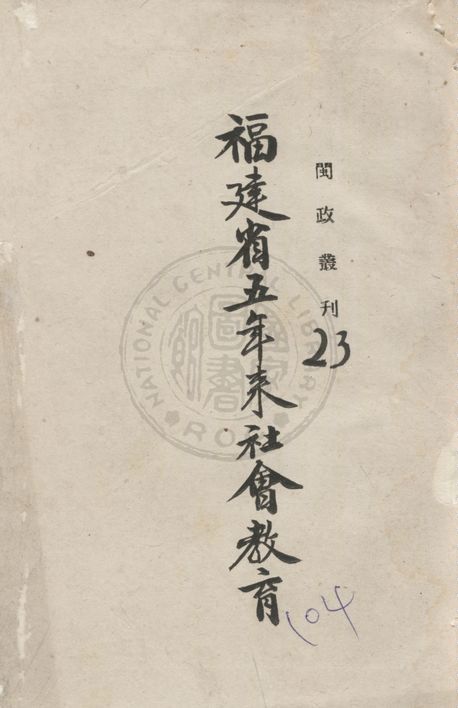 閩政叢刊
23
福建省五年来社會教育
104
NATIONAL CENTRAL LIBRARY
R.O.C.
國家圖書館